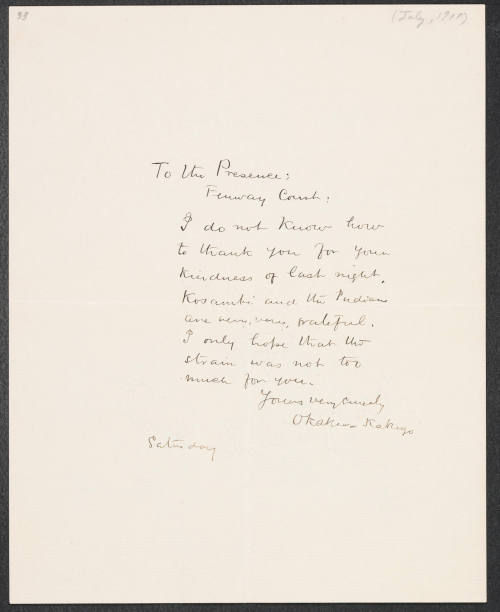 93
(July, 1911)
To the Presence:
Fenway Court:
I do not know how
to thank you for your
kindness of last night.
Kosambi and the Indians
are very, very, grateful.
I only hope that the
strain was not too
much for you.
Yours very sincerely
Okakura Kakuzo
Saturday